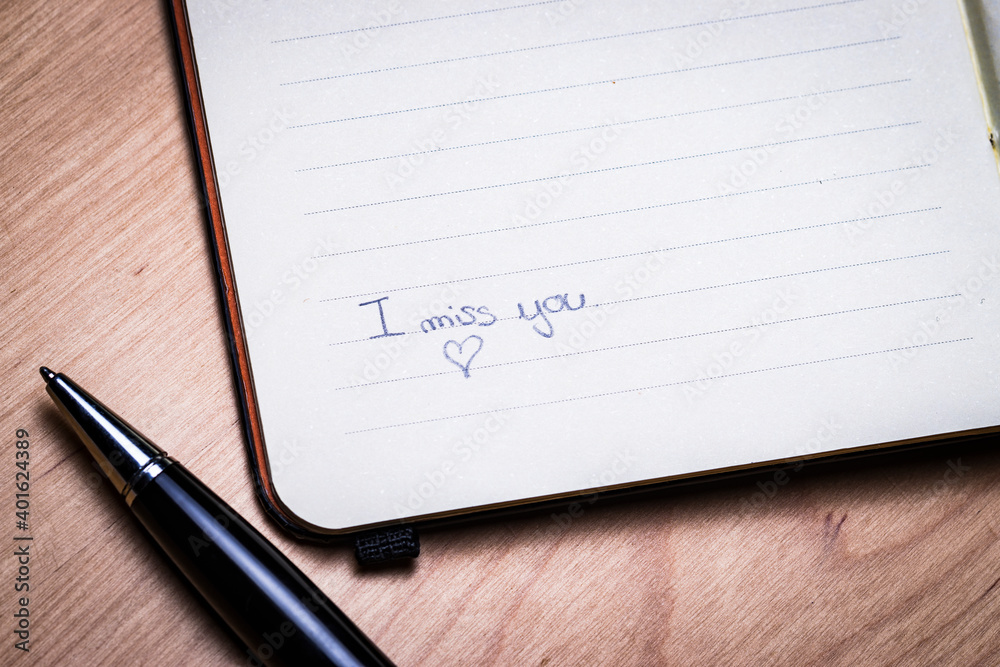 I miss you
♡
Adobe Stock | #401624389